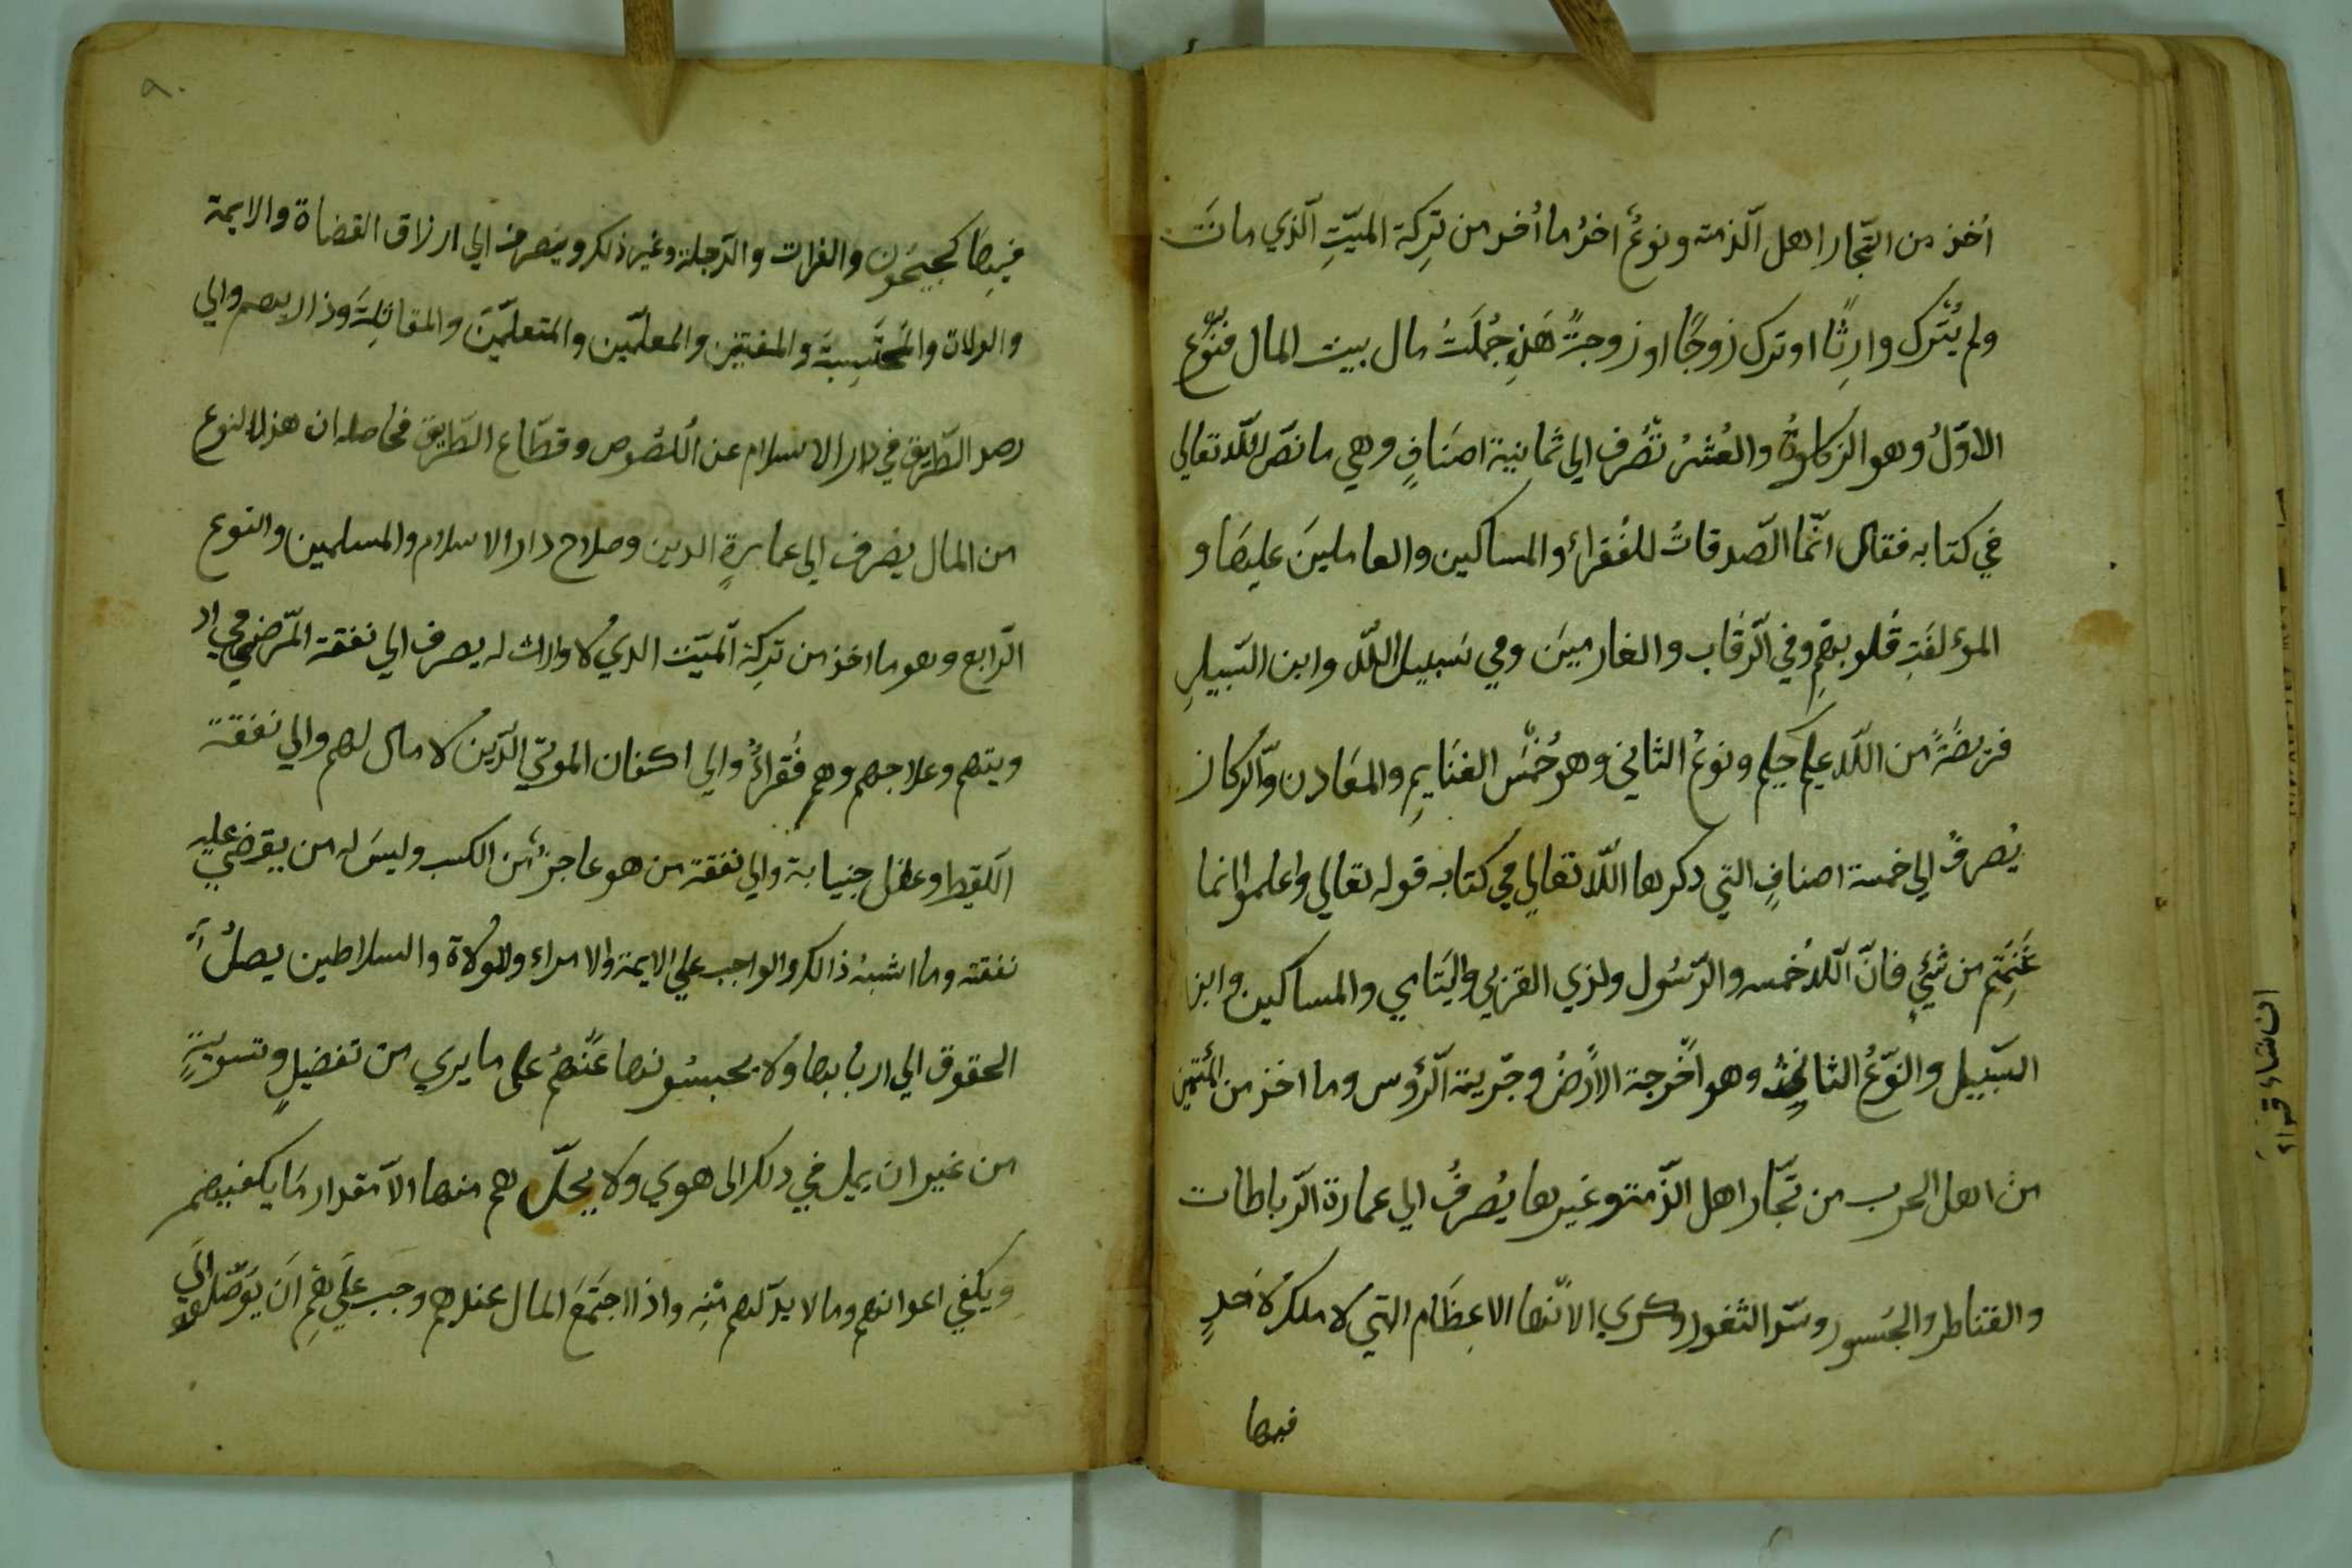 اُخذ من التّجار اهل الّذمته ونوعٌ اخرُ ما اُخذ من تَرِكة الميّتِ الّذي ماتَ
ولم يُتْرك وارِثًا او ترك زوجًا او زوجةً هَذِ جُملَتُ مال بيت المال فنّوع
الاوّلُ وهو الزكاوةُ والعُشرُ تصُرف الي ثمانية اصنَافٍ وهي ما نصّ اللّه تعالي
في كتابه فقال انّما الصّدقاتُ للفُقراء والمساكين والعاملينَ عليهَا و
المؤلفَتِ قُلوبهِم وفي الّرقَاب والغارمينَ وفي سَبيل اللّه وابن السَّبيلِ
فريضَةً من اللّه عليم حكيم ونوعُ الثاني وهو خُمْسُ الغنَايمِ والمعَادن والّركاز
يُصرفُ الي خمسة اصنافٍ التي ذكرها اللّه تعالي في كتابه قوله تعالي واعلموا انما
غَنِمتم من شيٍ فانّ اللّه خُمسه والرّسُول ولذي القربي واليَتامي والمساكين وابن
السّبيل والنّوعُ الثالث وهو اخّرجة الاَرضُ وجّرية الّرؤس وما اخذ من
من اهل الحرب من تجّار اهل الذّمته وغيرها يُصرفُ الي عمارة الّرباطات
والقناطر والجَسور وسّد الثغور وكري الانّهار الاعِظَام التي لا ملكَ لاَحدٍ
فيها
٩٠
فيها كجيحُون والفرات والدّجلة وغير ذلك ويصرف الي ارزاق القضاة والايمة
والولاة والمُحتَسِبة والمفتيَن والمعلّمين والمتعلّمينَ والمقاتِلةَ وذراريهم والي
رصد الطّريق في دار الاسلام عن اللُصُوص وقطّاع الطّريق فحاصله ان هذا النوع
من المال يصرف الي عمارةٍ الدين وصلاح دار الاسلام والمسلمين والنوع
الرّابع وهو ما اخذ من تَرِكة الميَت الذي لا وارث له يصرف الي نفقة المّرضي في اد
ويتهم وعلاجهم وهم فُقراءُ والي اكفان الموتي الذّين لا مال لهم والي نفقة
اللّقيط وعقل جنيابة والي نفقة من هو عاجزٌ من الكسب وليسَ له من يقرضي عليه
نفقته وما اشبهُ ذالك والواجب علي الايمة والامراء والولاة والسلاطين يصلُ
الحقوق الي اربابها ولا يحبسُونها عَنّهُم علي ما يري من تفضيلٍ وتسويةٍ
من غير ان يميل في ذلك الى هوي ولا يحلّ لهم منها الاّ مقدار مَا يكفيهم
ويكفي اعوانهم وما لا بدّ لهم مْنِه واذا اجَتمَعَ المال عندهم وجب عَلَيهِم اَن يوَصّلوه الَي
ان شاء